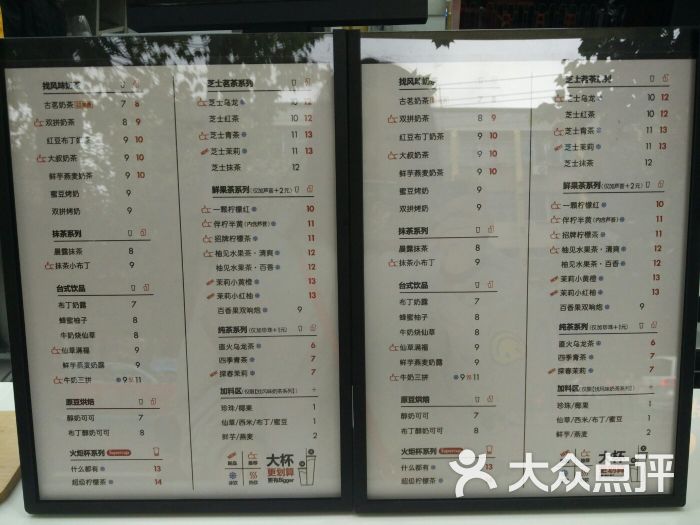 找风味奶茶
古茗奶茶 7 8
双拼奶茶 8 9
红豆布丁奶茶 9 10
大叔奶茶 9 10
鲜芋燕麦奶茶 9 10
蜜豆烤奶 9
双拼烤奶 9
抹茶系列
晨露抹茶 8
抹茶小布丁 9
台式饮品
布丁奶露 7
蜂蜜柚子 8
牛奶烧仙草 8
仙草满福 9
鲜芋燕麦奶露 9
牛奶三拼 9 11
原豆烘焙
醇奶可可 7
布丁醇奶可可 8
火炬杯系列
什么都有 13
超级柠檬茶 14
芝士茗茶系列
芝士乌龙 10 12
芝士红茶 10 12
芝士青茶 11 13
芝士茉莉 11 13
芝士抹茶 12
鲜果茶系列(仅加芦荟+2元)
一颗柠檬红 10
伴柠半黄(内含芦荟) 11
招牌柠檬茶 11
柚见水果茶·清爽 12
柚见水果茶·百香 12
茉莉小黄橙 13
茉莉小红柚 13
百香果双响炮 9
纯茶系列(仅加珍珠+1元)
直火乌龙茶 6
四季青茶 7
探春茉莉 7
加料区(仅限【找风味奶茶系列】) +
珍珠/椰果 1
仙草/西米/布丁/蜜豆 1
鲜芋/燕麦 2
大杯
更划算
更有Bigger
找风味奶茶
古茗奶茶 7 8
双拼奶茶 8 9
红豆布丁奶茶 9 10
大叔奶茶 9 10
鲜芋燕麦奶茶 9 10
蜜豆烤奶 9
双拼烤奶 9
抹茶系列
晨露抹茶 8
抹茶小布丁 9
台式饮品
布丁奶露 7
蜂蜜柚子 8
牛奶烧仙草 8
仙草满福 9
鲜芋燕麦奶露 9
牛奶三拼 9 11
原豆烘焙
醇奶可可 7
布丁醇奶可可 8
火炬杯系列
什么都有 13
超级柠檬茶
芝士茗茶系列
芝士乌龙 10 12
芝士红茶 10 12
芝士青茶 11 13
芝士茉莉 11 13
芝士抹茶 12
鲜果茶系列(仅加芦荟+2元)
一颗柠檬红 10
伴柠半黄(内含芦荟) 11
招牌柠檬茶 11
柚见水果茶·清爽 12
柚见水果茶·百香 12
茉莉小黄橙 13
茉莉小红柚 13
百香果双响炮 9
纯茶系列(仅加珍珠+1元)
直火乌龙茶 6
四季青茶 7
探春茉莉 7
加料区(仅限【找风味奶茶系列】) +
珍珠/椰果 1
仙草/西米/布丁/蜜豆 1
鲜芋/燕麦 2
大杯
大众点评